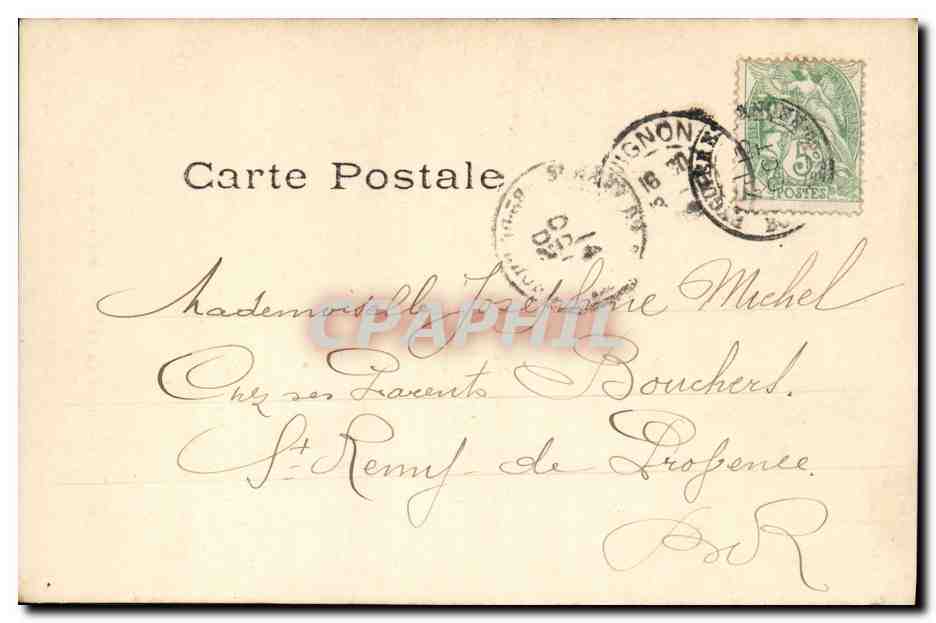 Carte Postale
AVIGNON
16 30
14 OCT 02
5
POSTES
CPAPHIL
Mademoiselle Joséphine Michel
Chez ses Parents Bouchers.
St Remy de Provence.
BdR